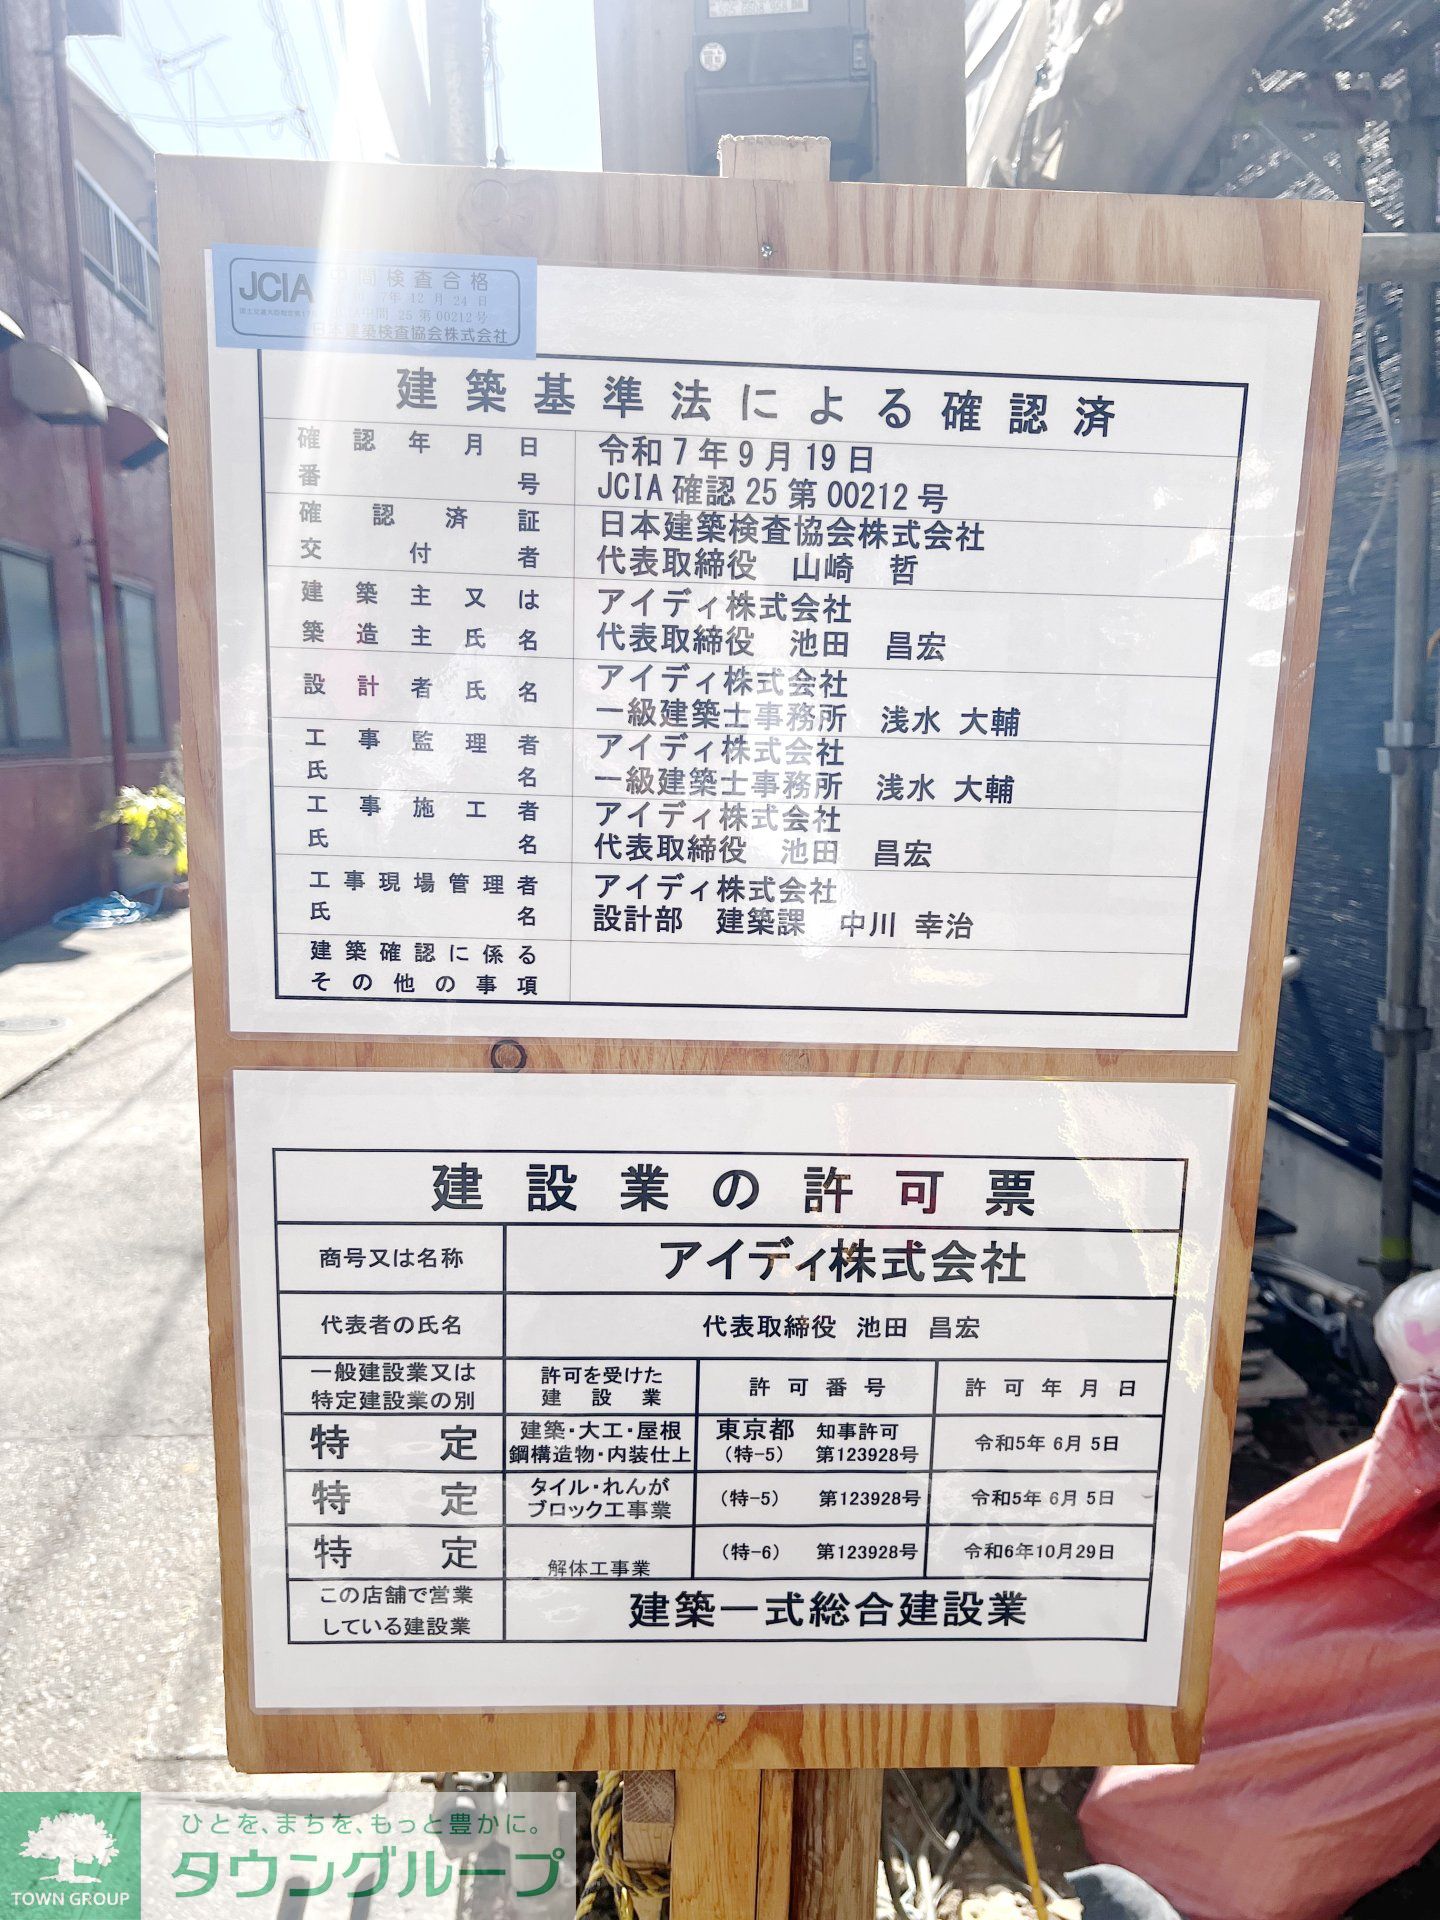 JCIA 中間検査合格
7年12月24日
中間 25 第00212号
日本建築検査協会株式会社
建築基準法による確認済
確認年月日 令和7年9月19日
番号 JCIA確認25第00212号
確認済証 日本建築検査協会株式会社
交付者 代表取締役 山崎 哲
建築主又は アイディ株式会社
築造主氏名 代表取締役 池田 昌宏
設計者氏名 アイディ株式会社
一級建築士事務所 浅水 大輔
工事監理者 アイディ株式会社
氏名 一級建築士事務所 浅水 大輔
工事施工者 アイディ株式会社
氏名 代表取締役 池田 昌宏
工事現場管理者 アイディ株式会社
氏名 設計部 建築課 中川 幸治
建築確認に係る
その他の事項
建設業の許可票
商号又は名称 アイディ株式会社
代表者の氏名 代表取締役 池田 昌宏
一般建設業又は 許可を受けた 許可番号 許可年月日
特定建設業の別 建設業
特定 建築・大工・屋根 東京都 知事許可 令和5年 6月 5日
鋼構造物・内装仕上 (特-5) 第123928号
特定 タイル・れんが (特-5) 第123928号 令和5年 6月 5日
ブロック工事業
特定 解体工事業 (特-6) 第123928号 令和6年10月29日
この店舗で営業 建築一式総合建設業
している建設業
ひとを、まちを、もっと豊かに。
タウングループ
TOWN GROUP